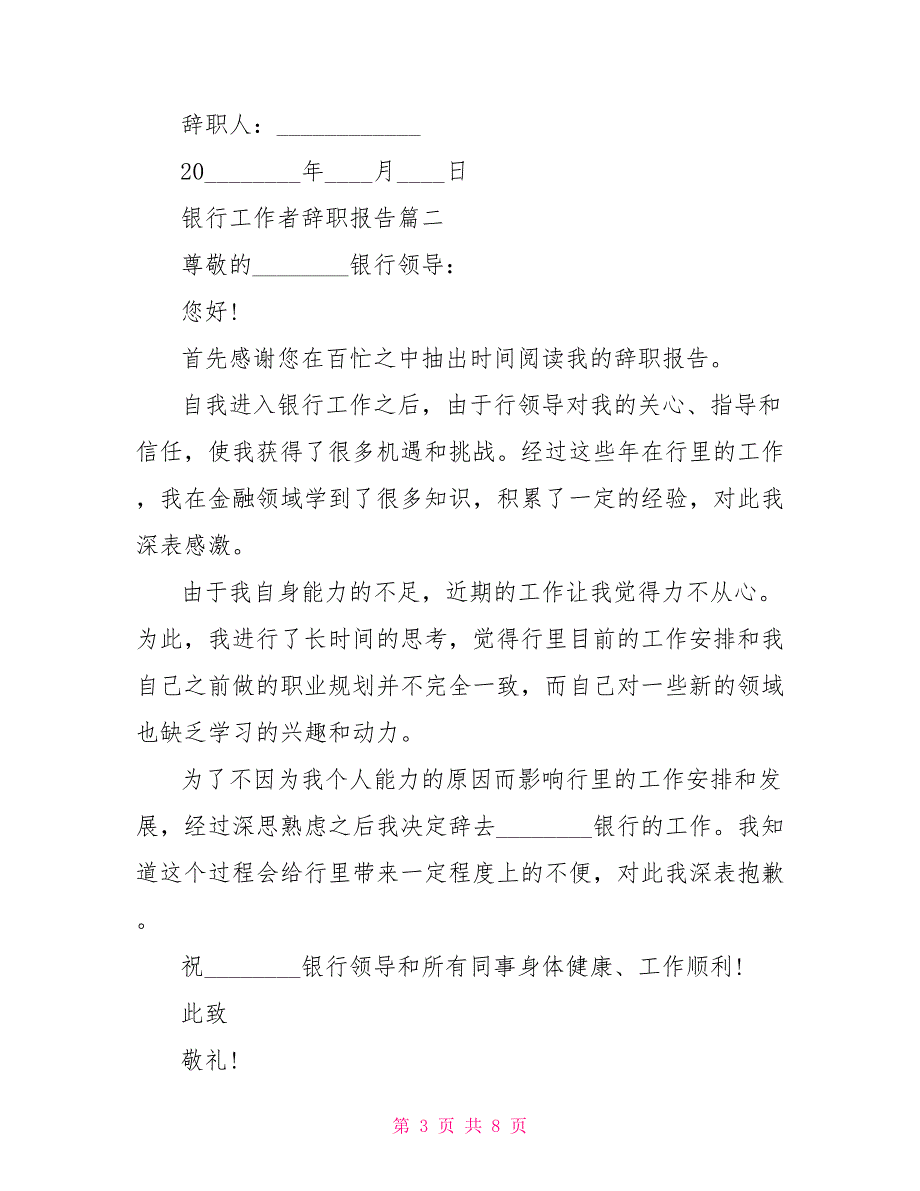 辞职人：____________
20________年____月____日
银行工作者辞职报告篇二
尊敬的________银行领导：
您好!
首先感谢您在百忙之中抽出时间阅读我的辞职报告。
自我进入银行工作之后，由于行领导对我的关心、指导和
信任，使我获得了很多机遇和挑战。经过这些年在行里的工作
，我在金融领域学到了很多知识，积累了一定的经验，对此我
深表感激。
由于我自身能力的不足，近期的工作让我觉得力不从心。
为此，我进行了长时间的思考，觉得行里目前的工作安排和我
自己之前做的职业规划并不完全一致，而自己对一些新的领域
也缺乏学习的兴趣和动力。
为了不因为我个人能力的原因而影响行里的工作安排和发
展，经过深思熟虑之后我决定辞去________银行的工作。我知
道这个过程会给行里带来一定程度上的不便，对此我深表抱歉
。
祝________银行领导和所有同事身体健康、工作顺利!
此致
敬礼!
第 3 页 共 8 页